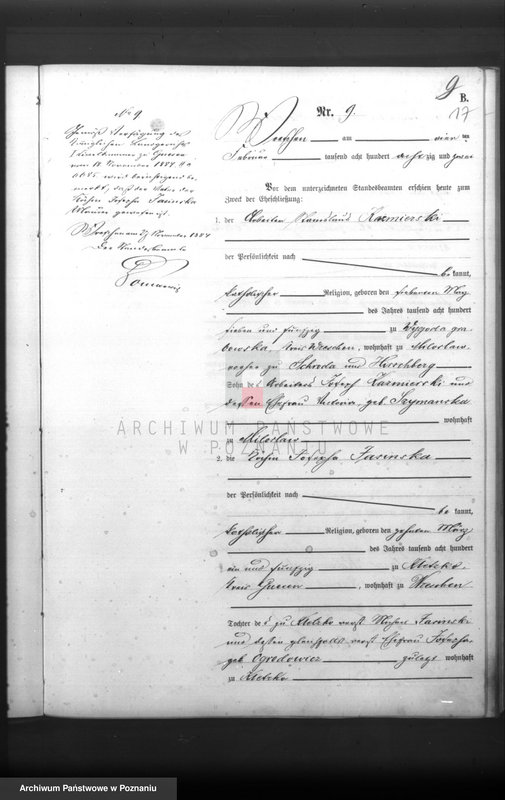 9
B.
17
No 9
Nr. 9.
Wreschen am vier ten
Februar tausend acht hundert acht zig und zwei
Vor dem unterzeichneten Standesbeamten erschien heute zum
Zweck der Eheschließung:
1. der Arbeiter Stanislaus Kazmierski
der Persönlichkeit nach
be kannt,
katholischer Religion, geboren den siebenten May
des Jahres tausend acht hundert
sieben und fünfzig zu Wygoda
Kreis Wreschen, wohnhaft zu Miloslaw
zu Schroda und Hirschberg
Sohn des Arbeiters Joseph Kazmierski und
dessen Ehefrau geb. Szymanska
wohnhaft
zu Miloslaw
2. die Köchin Josepha Jasinska
der Persönlichkeit nach
be kannt,
katholischer Religion, geboren den zehnten März
des Jahres tausend acht hundert
ein und fünfzig zu Kletzko,
Kreis Gnesen, wohnhaft zu Wreschen
Tochter de zu Kletzko verst Jasinski
und dessen verst Ehefrau Josepha
geb Ogrodowicz zuletzt wohnhaft
zu Kletzko
Gemäß Verfügung des
Königlichen Landgerichts
zu Gnesen
vom 18 November 1884
wird berichtigend
bemerkt, daß der Vater der
Köchin Josepha Jasinska
gewesen ist.
Wreschen am November 1884
Der Standesbeamte
ARCHIWUM PAŃSTWOWE
W POZNANIU
Archiwum Państwowe w Poznaniu